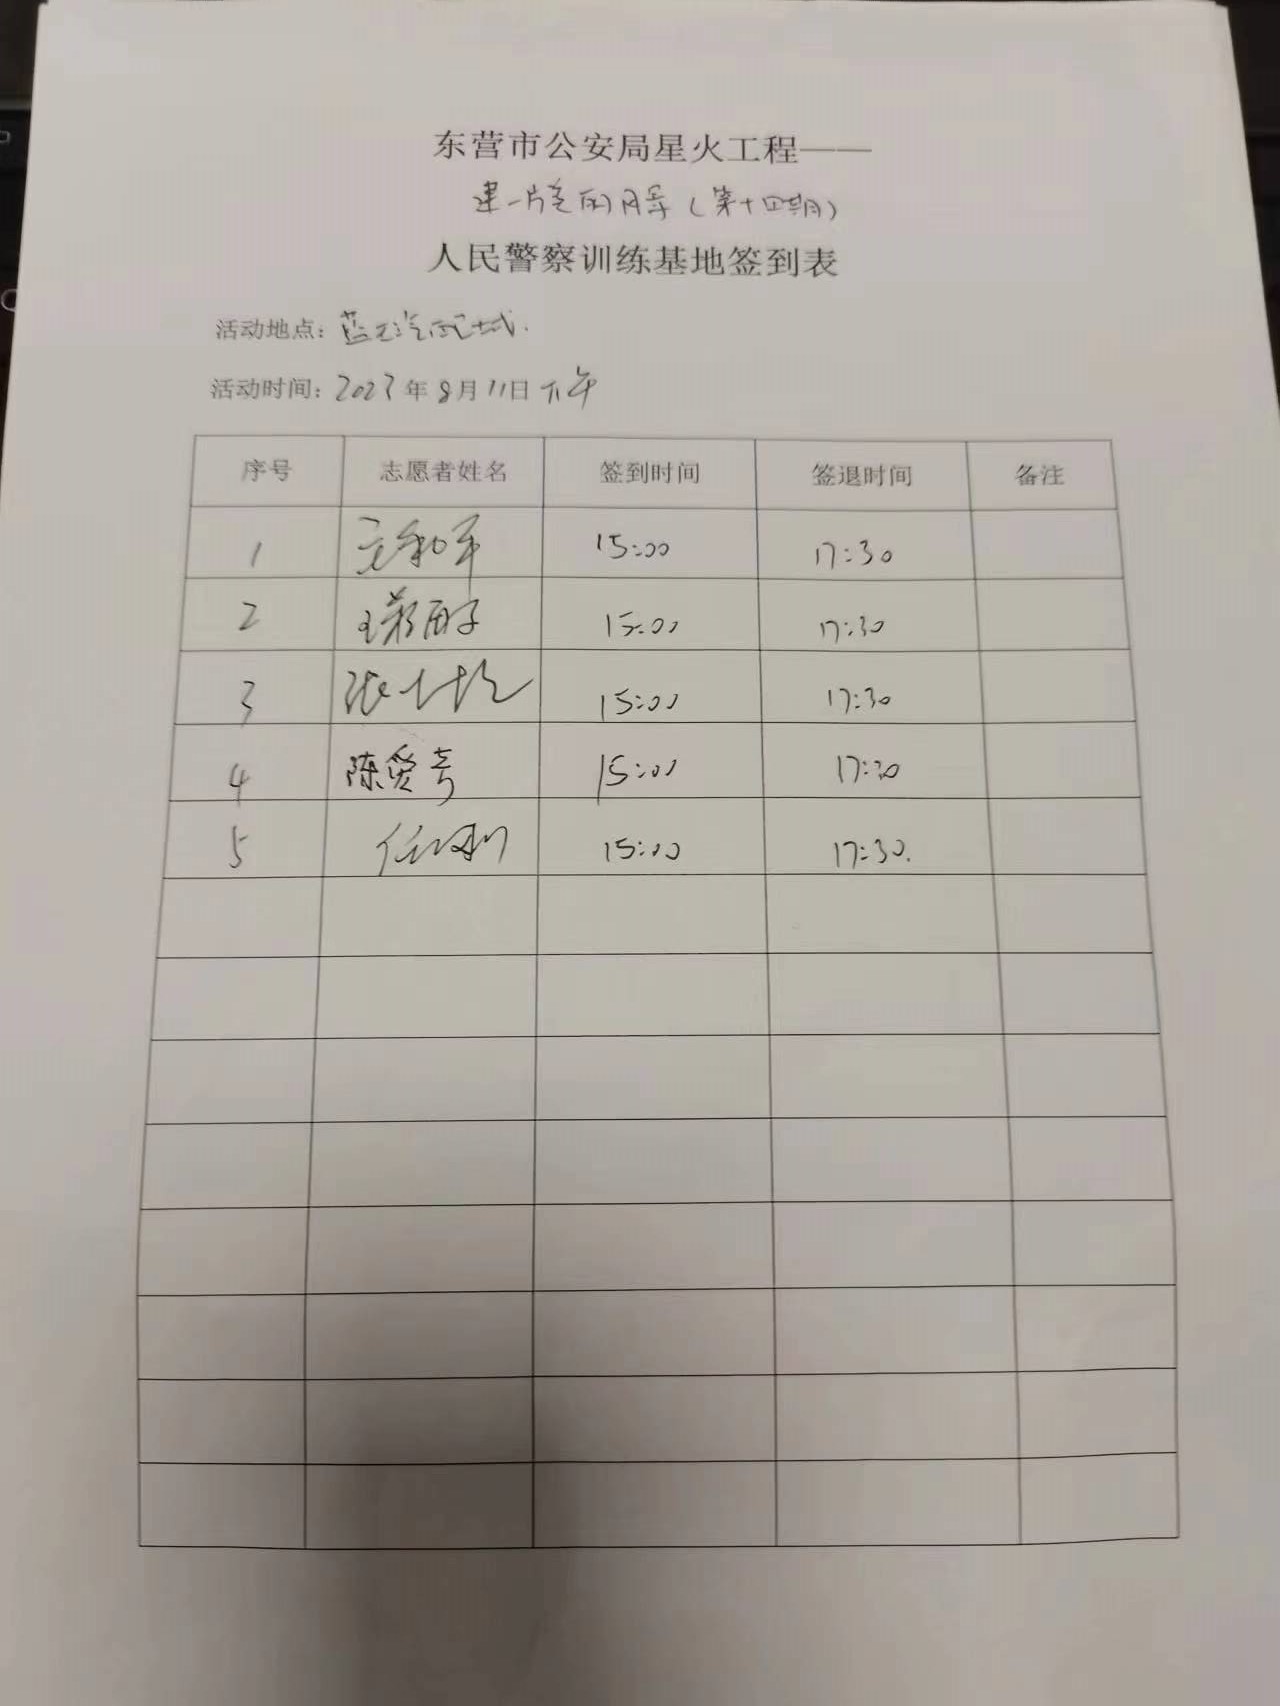 东营市公安局星火工程——
建一片 的 （第十四期）
人民警察训练基地签到表
活动地点：蓝天汽配城.
活动时间：2023年8月11日 下午
序号 志愿者姓名 签到时间 签退时间 备注
1 15:00 17:30
2 15:00 17:30
3 张 15:00 17:30
4 陈爱 15:00 17:30
5 任刚 15:00 17:30.